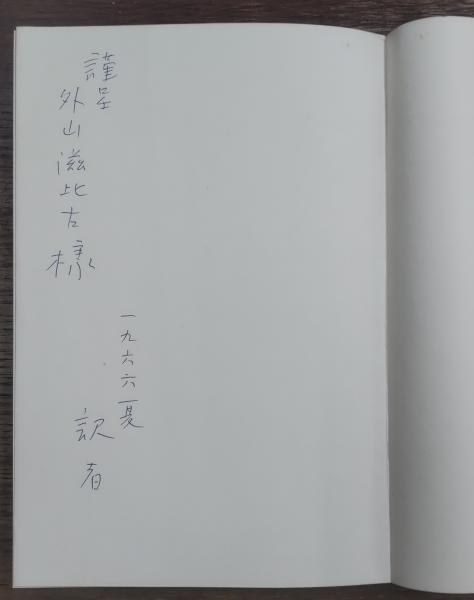 謹呈
外山滋比古様
一九六六夏
訳者